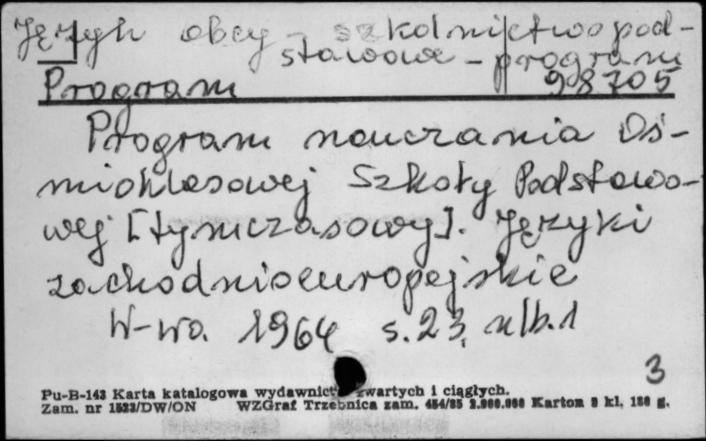 Język obcy - szkolnictwo pod-
stawowe - program
Program 98705
Program nauczania Oś-
mioklasowej Szkoły Podstawo-
wej [tymczasowy]. Języki
zachodnioeuropejskie
W-wa. 1964 s. 23, nlb. 1
3
Pu-B-143 Karta katalogowa wydawnictw zwartych i ciągłych.
Zam. nr 1523/DW/ON WZGraf Trzebnica zam. 454/85 2.000.000 Karton 3 kl. 180 g.